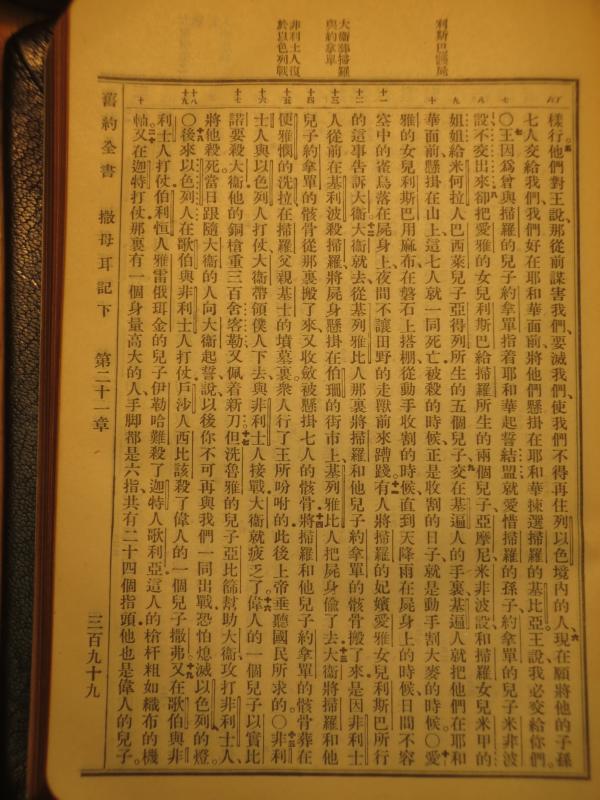 利斯巴護屍
大衛葬掃羅
與約拿單
非利士人復
於以色列戰
樣行他們對王說、那從前謀害我們、要滅我們、使我們不得再住列以色境內的人、現在願將他的子孫
七人交給我們、我們好在耶和華面前將他們懸掛在耶和華揀選掃羅的基比亞。王說我必交給你們。
〇王因爲曾與掃羅的兒子約拿單指着耶和華起誓結盟就愛惜掃羅的孫子約拿單的兒子米非波
設不交出來卻把愛雅的女兒利斯巴給掃羅所生的兩個兒子亞摩尼米非波設和掃羅女兒米甲的
姐姐給米何拉人巴西萊兒子亞得列所生的五個兒子交在基遍人的手裏基遍人就把他們在耶和
華面前懸掛在山上這七人就一同死亡被殺的時候正是收割的日子就是動手割大麥的時候。〇愛
雅的女兒利斯巴用麻布在磐石上搭棚從動手收割的時候直到天降雨在屍身上的時候日間不容
空中的雀鳥落在屍身上夜間不讓田野的走獸前來蹧踐有人將掃羅的妃嬪愛雅女兒利斯巴所行
的這事告訴大衛大衛就去從基列雅比人那裏將掃羅和他兒子約拿單的骸骨搬了來是因非利士
人從前在基利波殺掃羅將屍身懸掛在伯珊的街市上基列雅比人把屍身偷了去大衛將掃羅和他
兒子約拿單的骸骨從那裏搬了來又收斂被懸掛七人的骸骨將掃羅和他兒子約拿單的骸骨葬在
便雅憫的洗拉在掃羅父親基士的墳墓裏衆人行了王所吩咐的此後上帝垂聽國民所求的〇非利
士人與以色列人打仗大衛帶領僕人下去與非利士人接戰大衛就疲乏了偉人的一個兒子以實比
諾要殺大衛他的銅槍重三百舍客勒又佩着新刀但洗魯雅的兒子亞比篩幫助大衛攻打非利士人、
將他殺死當日跟隨大衛的人向大衛起誓說以後你不可再與我們一同出戰恐怕熄滅以色列的燈。
〇後來以色列人在歌伯與非利士人打仗戶沙人西比該殺了偉人的一個兒子撒弗又在歌伯與非
利士人打仗伯利恒人雅雷俄珥金的兒子伊勒哈難殺了迦特人歌利亞這人的槍杆粗如織布的機
軸又在迦特打仗那裏有一個身量高大的人手脚都是六指共有二十四個指頭他也是偉人的兒子。
舊約全書 撒母耳記下 第二十一章 三百九十九